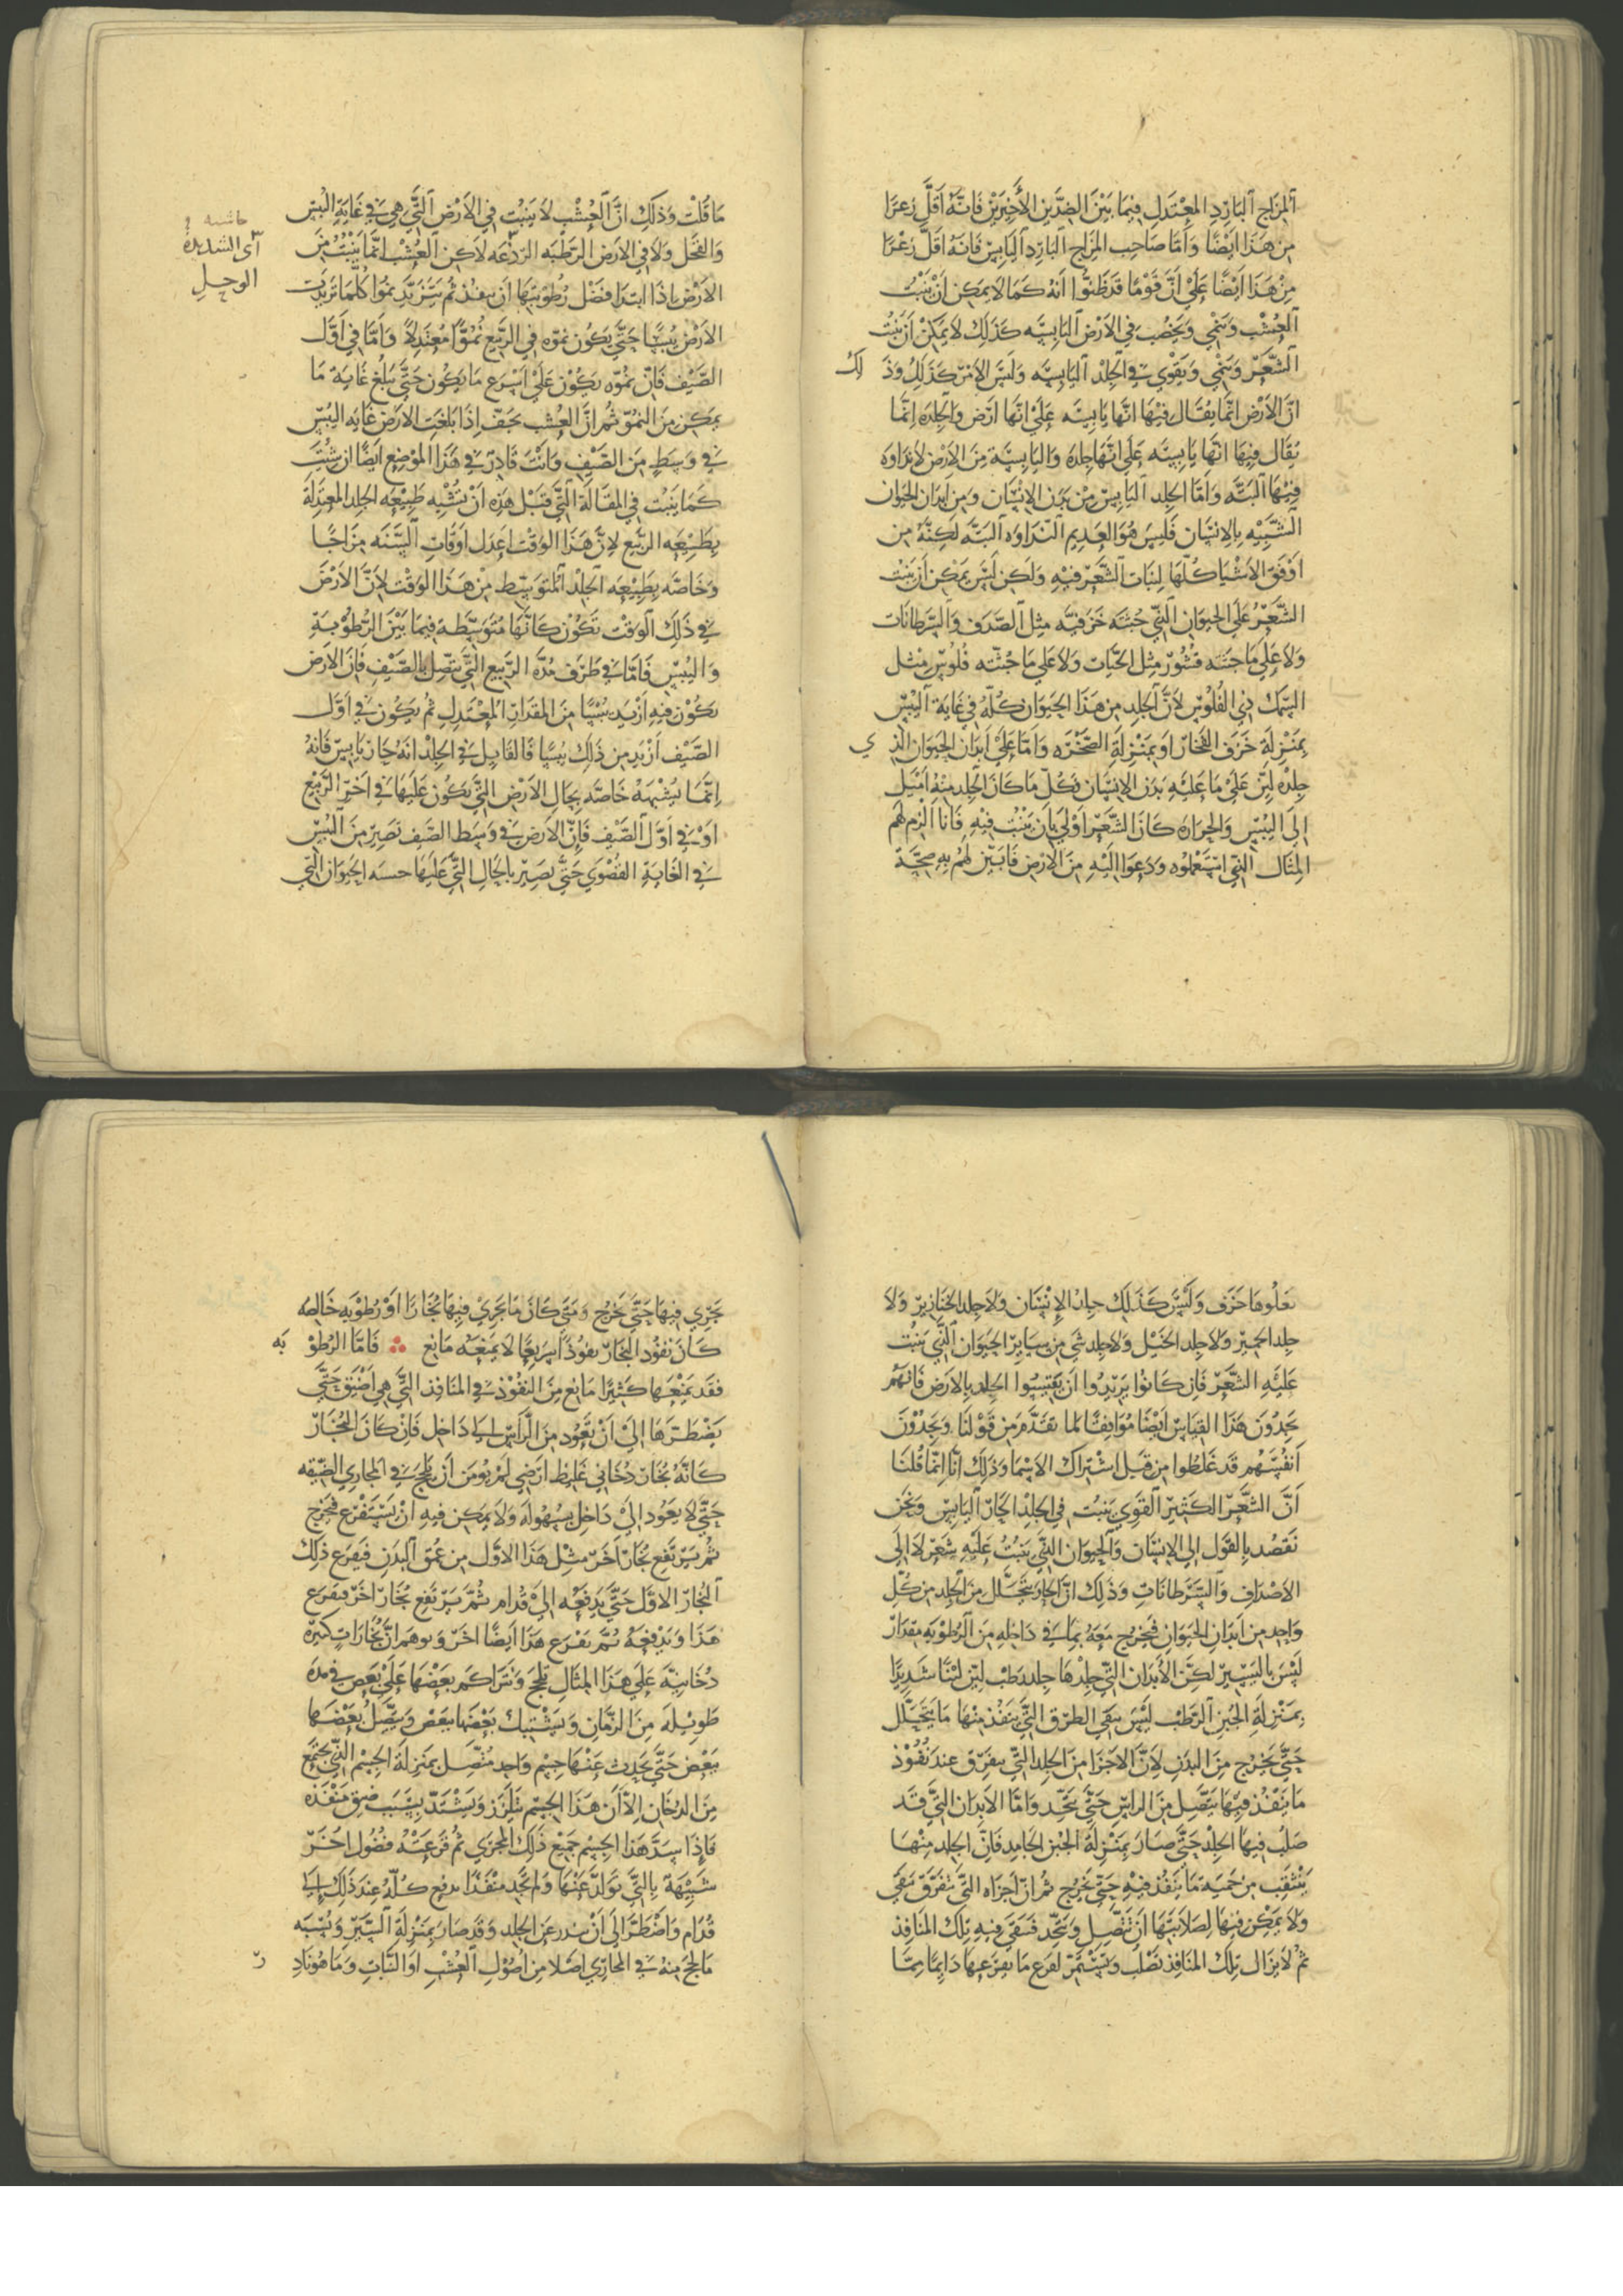 المزاج البارد المعتدل فيما بين الضدين الأخيرين فانه اقل زعرا
من هذا ايضا واما صاحب المزاج البارد اليابس فانه اقل زعرا
من هذا ايضا على ان قوما قد ظنوا انه كما لا يمكن ان ينبت
العشب وينمي ويخصب في الارض اليابسه كذلك لا يمكن ان ينبت
الشعر وينمي ويقوي في الجلد اليابسه وليس الامر كذلك وذلك
ان الارض انما يقال فيها انها يابسه على انها ارض والجلده انما
يقال فيها انها يابسه على انها جلده واليابسة من الارض لا نداوه
فيها البته واما الجلد اليابس من بدن الانسان ومن ابدان الحيوان
الشبيه بالانسان فليس هو العديم النداوه البته لكنه من
اوفق الاشيا كلها لنبات الشعر فيه ولكن ليس يمكن ان ينبت
الشعر على الحيوان التي جثته خزفيه مثل الصدف والسرطانات
ولا على ما جثته قشور مثل الحيات ولا على ما جثته فلوس مثل
السمك ذي الفلوس لان الجلد من هذا الحيوان كله في غاية اليبس
بمنزلة خزف الفخار او بمنزلة الصخره واما على ابدان الحيوان الذي
جلده لين على ما عليه بدن الانسان فكل ما كان الجلد منه اميل
الى اليبس والحراره كان الشعر اولى بان ينبت فيه فانا الزم لهم
المثال التي استعملوه ودعوا اليه من الارض فابين لهم به صحة
ما قلت وذلك ان العشب لا ينبت في الارض التي هي في غاية اليبس
والقحل ولا في الارض الرطبه الردغه لاكن العشب انما ينبت من
الارض اذا ابتدا فضل رطوبتها ان ينفذ ثم يتزيد نموا كلما تزيدت
الارض يبسا حتى يكون نموه في الربيع نموا معتدلا واما في اول
الصيف فان نموه يكون على اسرع ما يكون حتى يبلغ غاية ما
يمكن من النمو ثم ان العشب يجف اذا بلغت الارض غايه اليبس
في وسط من الصيف وانت قادر في هذا الموضع ايضا ان شئت
كما ينبت في المقالة التي قبل هذه ان تشبه طبيعه الجلد المعتدلة
بطبيعه الربيع لان هذا الوقت اعدل اوقات السنه مزاجا
وخاصه بطبيعه الجلد المتوسط من هذا الوقت لان الارض
في ذلك الوقت تكون كانها متوسطه فيما بين الرطوبة
واليبس فاما في طرف مده الربيع التي يتصل بالصيف فان الارض
يكون فيه ازيد يبسا من المقدار المعتدل ثم يكون في اول
الصيف ازيد من ذلك يبسا فالقايل في الجلد انه حار يابس فانه
انما يشبهه خاصه بحال الارض التي تكون عليها في اخر الربيع
او في اول الصيف فان الارض في وسط الصيف تصير من اليبس
في الغاية القصوي حتى تصير بالحال التي عليها الحيوان التي
حاشيه
أى الشديدة
الوحل
تعلوها خزف وليس كذلك جلد الإنسان ولا جلد الخنازير ولا
جلد الحمير ولا جلد الخيل ولا جلد شي من سائر الحيوان التي ينبت
عليه الشعر فان كانوا يريدوا ان يقيسوا الجلد بالارض فانهم
يجدون هذا القياس ايضا موافقا لما تقدم من قولنا ويجدون
انفسهم قد غلطوا من قبل اشتراك الاسما وذلك انا انما قلنا
ان الشعر الكثير القوي ينبت في الجلد الحار اليابس ونحن
نقصد بالقول الى الانسان والحيوان التي ينبت عليه شعر لا الى
الاصداف والسرطانات وذلك ان الحار يتحلل من الجلد من كل
واحد من ابدان الحيوان فيخرج معه بما في داخله من الرطوبه مقدار
ليس باليسير لكن الأبدان التي جلدها جلد رطب لين لينا شديدا
بمنزلة الجبن الرطب ليس يبقي الطرق التي ينفذ منها ما يتحلل
حتى يخرج من البدن لان الاجزا من الجلد التي يفرق عند نفوذ
ما ينفذ فيها يتصل من الراس حتى يتحد واما الابدان التي قد
صلب فيها الجلد حتى صار بمنزلة الجبن الجامد فان الجلد منها
ينثقب من حميه ما ينفذ فيه حتى يخرج ثم ان اجزاه التي تفرق تبقى
ولا يمكن فيها لصلابتها ان تتصل وتتحد فتبقى فيه تلك المنافذ
ثم لا يزال تلك المنافذ تصلب ويستمر لقرع ما يقرعها دايما مما
يجري فيها حتى يخرج ومتى كان ما يجري فيها بخارا او رطوبه خالصه
كان نفوذ البخار نفوذا سريعا لا يمنعه مانع فاما الرطوبه
فقد يمنعها كثيرا مانع من النفوذ في المنافذ التي هي اضيق حتى
يضطرها الى ان تعود من الراس الى داخل فان كان البخار
كانه بخار دخاني غليظ ارضي لم يومن ان يلحج في المجاري الضيقه
حتى لا يعود الى داخل بسهوله ولا يمكن فيه ان يستفرغ فيخرج
ثم يرتفع بخار اخر مثل هذا الاول من عمق البدن فيقرع ذلك
البخار الاول حتى يدفعه الى قدام ثم يرتفع بخار اخر فيقرع
هذا ويدفعه ثم يقرع هذا ايضا اخر وتوهم ان بخارات كثيره
دخانيه على هذا المثال تلحج وتتراكم بعضها على بعض في مده
طويله من الزمان ويشتبك بعضها ببعض ويتصل بعضها
ببعض حتى يحدث عنها جسم واحد متصل بمنزلة الجسم التي يجتمع
من الدخان الا ان هذا الجسم يتلزز ويشتد بسبب ضيق منفذه
فاذا سد هذا الجسم جميع ذلك المجرى ثم قرعته فضول اخر
شبيهة بالتي تولد عنها ولم تجد منفذا يدفع كله عند ذلك الى
قدام واضطر الى ان يندر عن الجلد وقد صار بمنزلة السير ونسبه
ما لحج منه في المجاري اصلا من اصول العشب او النبات وما هو نادر